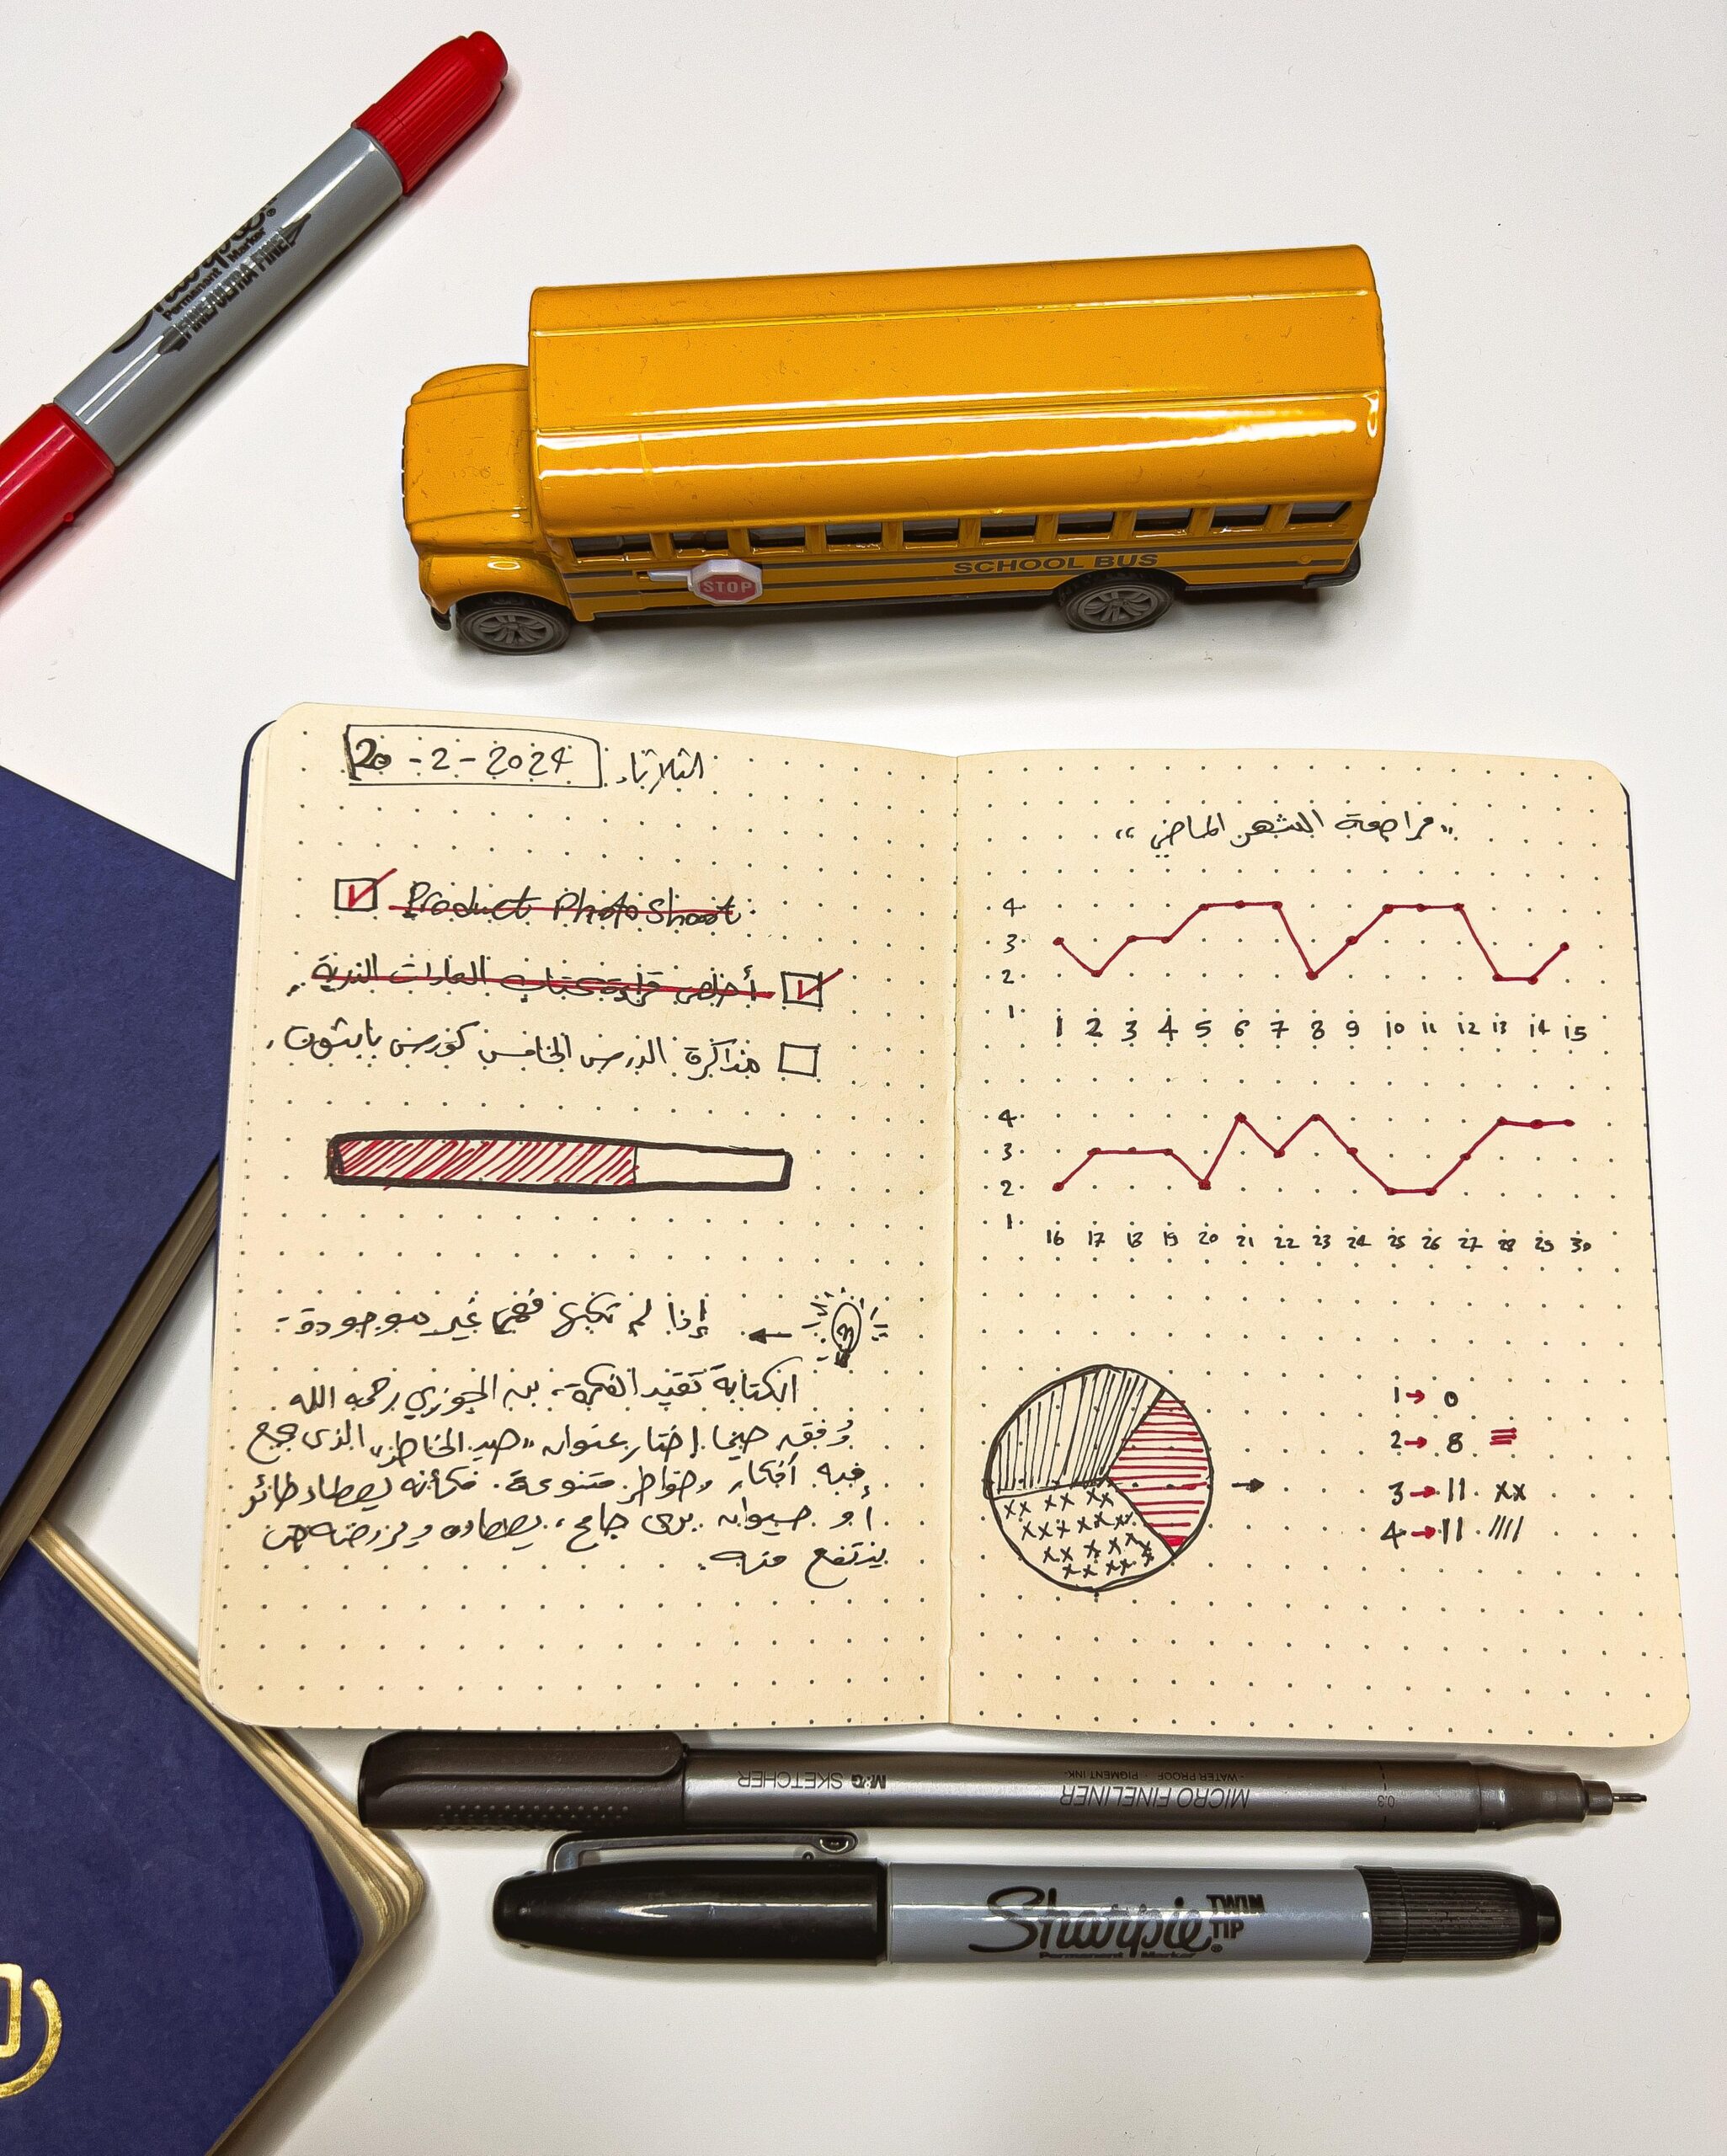 Sharpie®
Permanent Marker
FINE/ULTRA FINE
STOP
SCHOOL BUS
20-2-2024 الثلاثاء
Product Photo Shoot
أخلص قراءة كتاب العادات الذرية.
مذاكرة الدرس الخامس كورس بايثون.
إذا لم تكتبها فهي غير موجودة -
الكتابة تقيد الفكرة، بن الجوزي رحمه الله
وُفق حينما إختار عنوان "صيد الخاطر" الذي جمع
فيه أفكار وخواطر متنوعة. فكأنه يصطاد طائر
أو حيوان بري جامح، يصطاده ويروضه
ينتفع منه.
"مراجعة الشهر الماضي"
4
3
2
1
1 2 3 4 5 6 7 8 9 10 11 12 13 14 15
4
3
2
1
16 17 18 19 20 21 22 23 24 25 26 27 28 29 30
1→ 0
2→ 8
3→ 11 xx
4→ 11 ////
M&G SKETCHER
MICRO FINELINER
-WATER PROOF · PIGMENT INK-
0.3
Sharpie® TWIN TIP
Permanent Marker